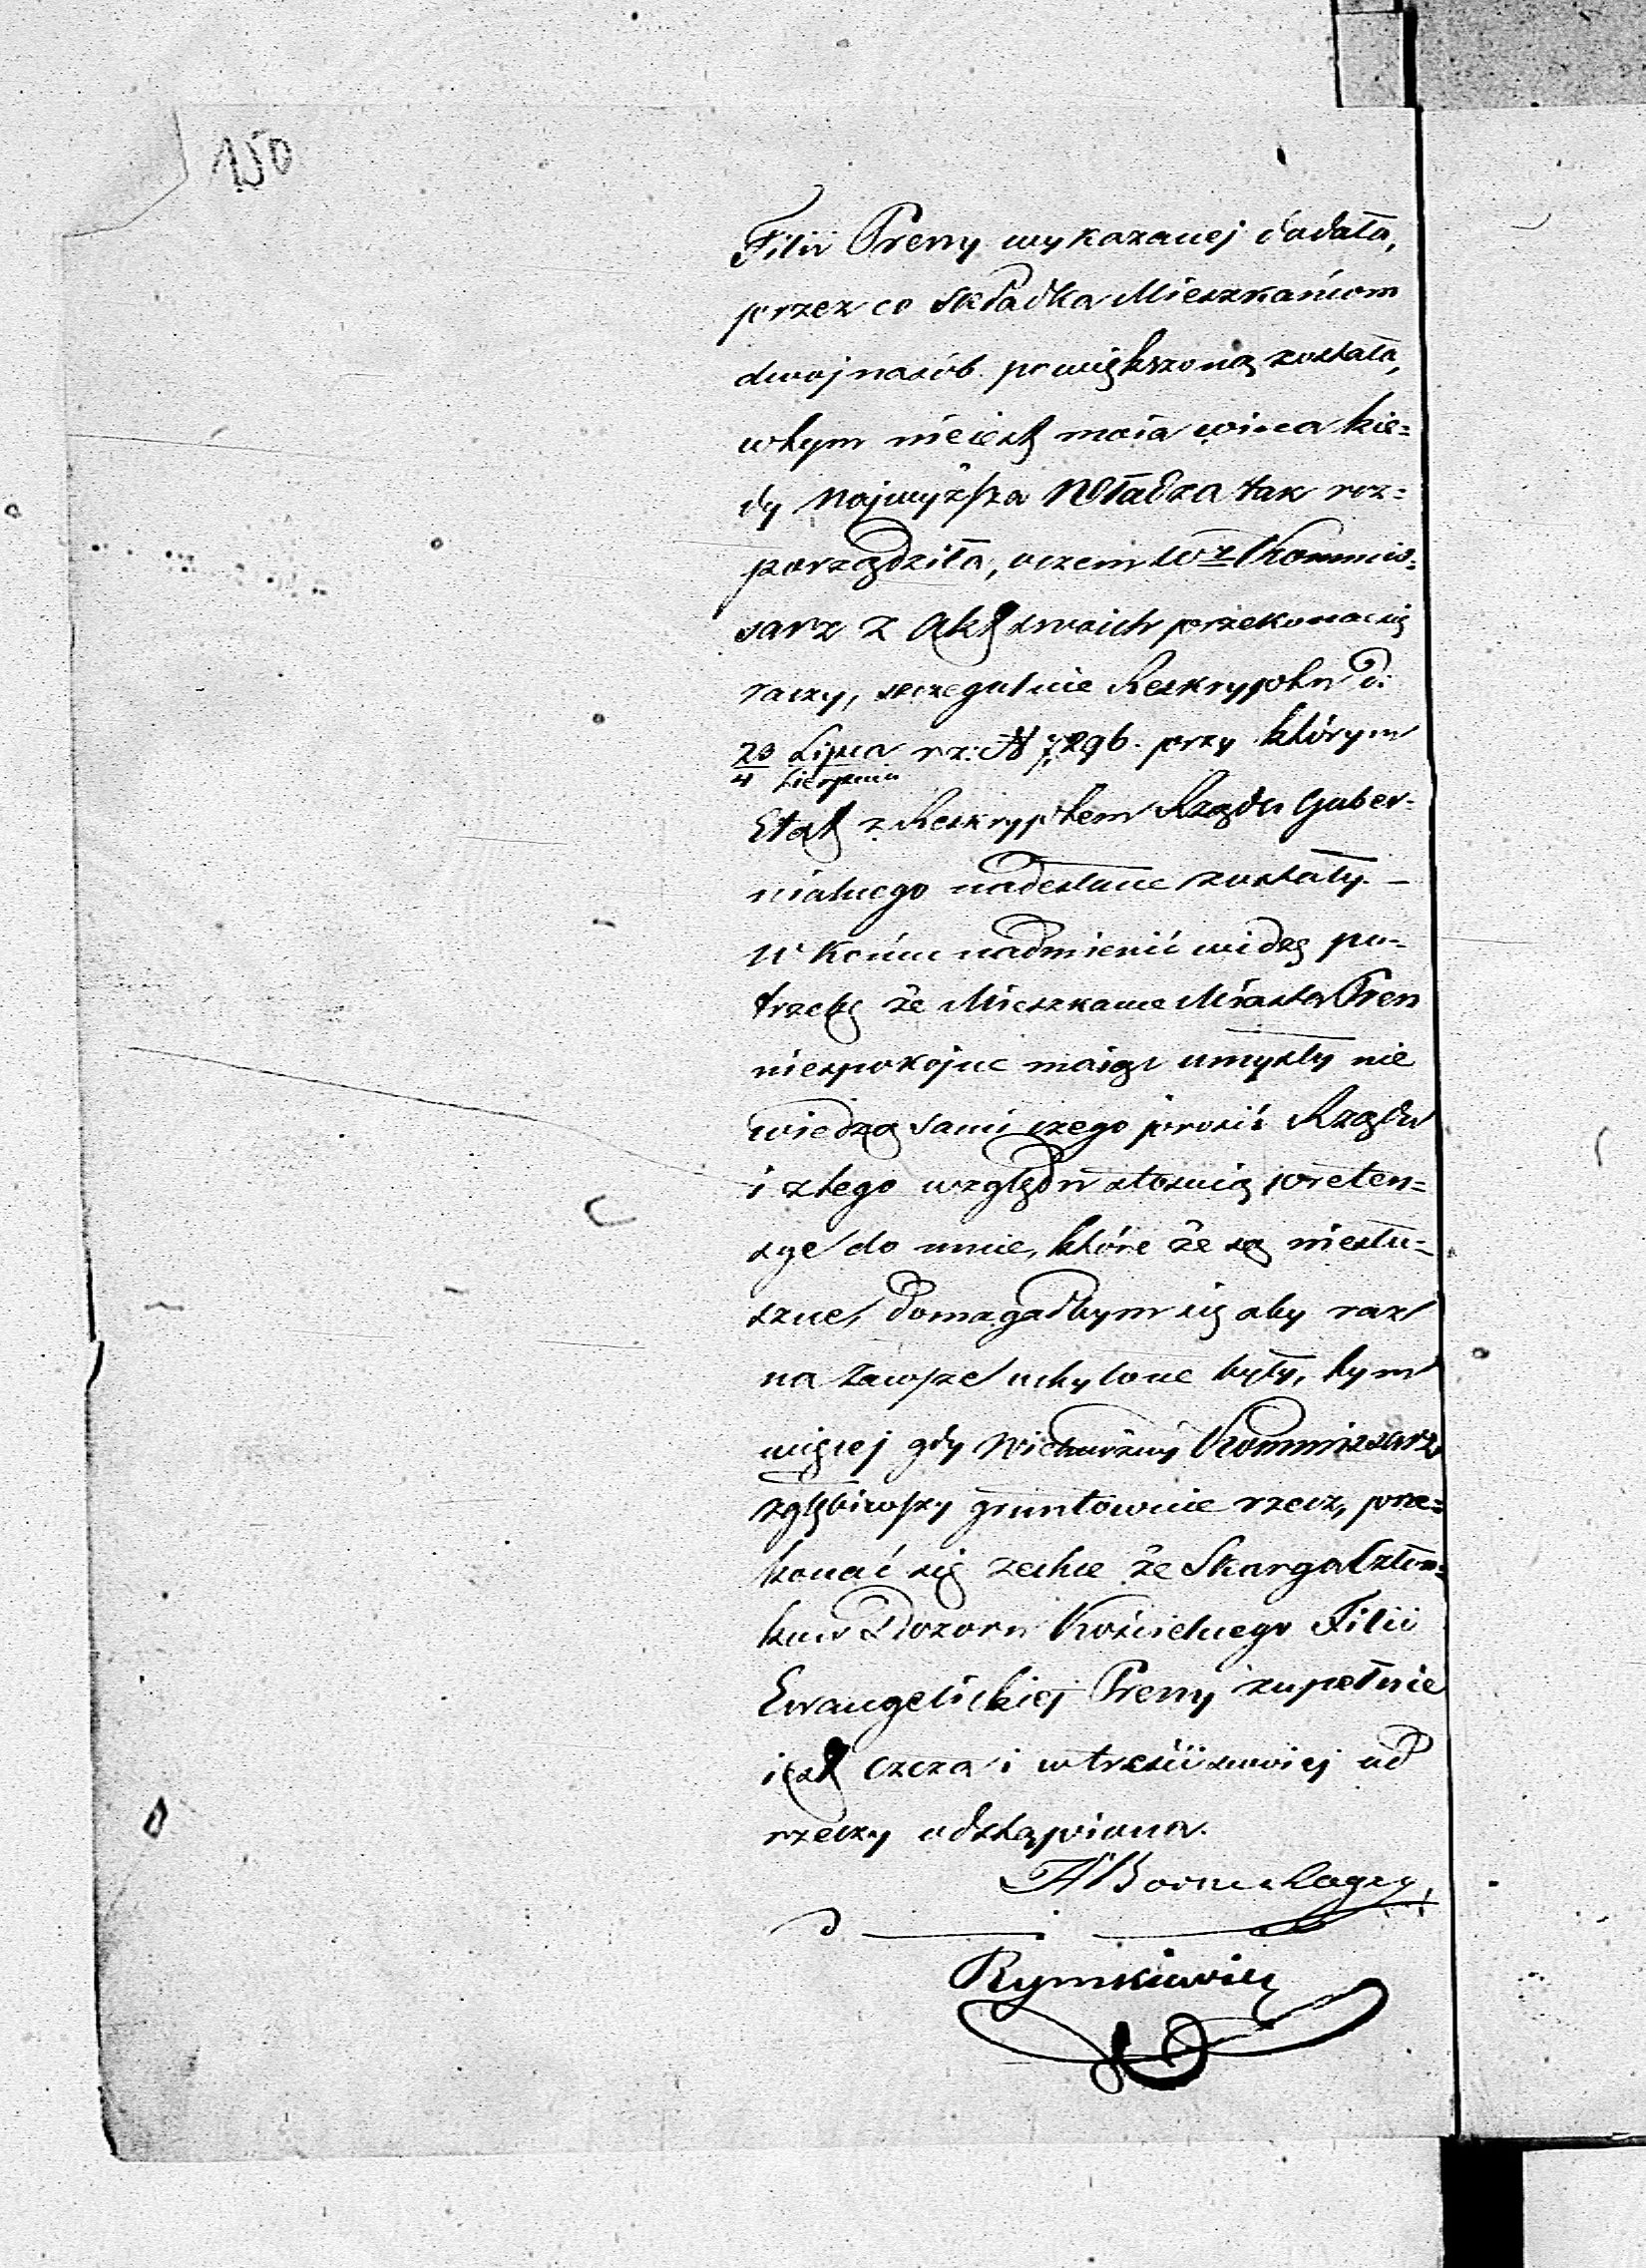 150
Filii Preny wykazanej dodała,
przez co składka Mieszkańcom
dwojnasób powiększoną została,
wtym nieiest moia wina kie=
dy Najwyższa Władza tak roz=
porządziła, oczem Wny Kommis=
sarz z Akt swoich przekonać się
raczy, szczegulnie Reskryptu d:
20 Lipca rz: N 7296. przy którym
4 Sierpnia
Etat z Reskryptem Rządu Guber=
nialnego nadesłane zostały. —
W końcu nadmienić widzę po=
trzebę że Mieszkańce Miasta Pren
niespokojne maiąc umysły nie
wiedzą sami czego prosić Rządu
i ztego względu stosuią preten=
sye do mnie, które że są niesłu=
szne, domagałbym się aby raz
na zawsze uchylone były, tym
więcej gdy Wielmożny Kommissarz
zgłębiwszy gruntownie rzecz, prze=
konać się zechce że Skarga Człon=
ków Dozoru Kościelnego Filii
Ewangelickiej Preny zupełnie
iest czcza i w treści swoiej od
rzeczy odstąpiona.
Rymkiewicz